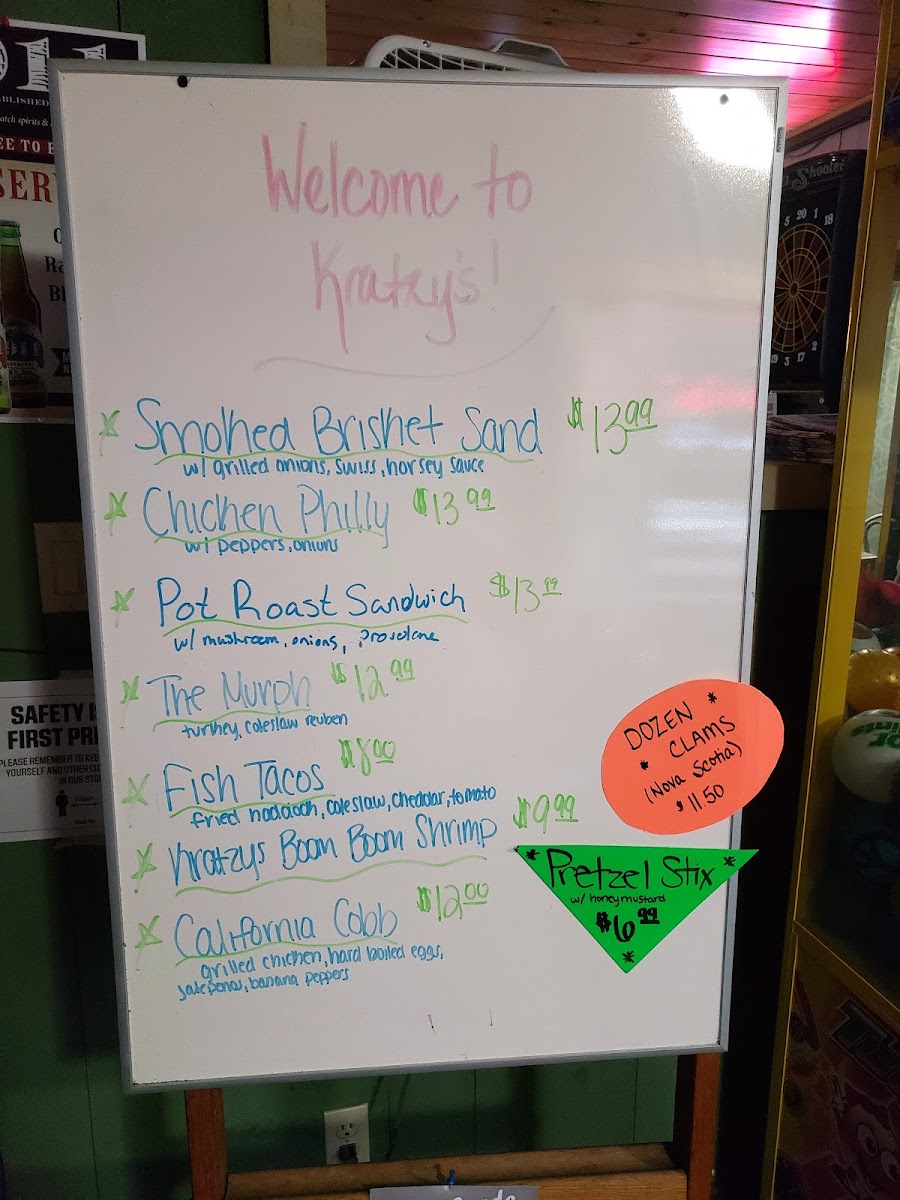 ABLISHED
atch spirits &
EE TO
SER
Shooter
5 20 1 18
19 3 17 2
Welcome to
Kratzy's!
Smoked Brisket Sand $13.99
w/ grilled onions, swiss, horsey sauce
Chicken Philly $13.99
w/ peppers, onions
Pot Roast Sandwich $13.99
w/ mushroom, onions, provolone
The Murph $12.99
turkey, coleslaw reuben
Fish Tacos $8.00
fried haddock, coleslaw, cheddar, tomato
Kratzys Boom Boom Shrimp $9.99
California Cobb $12.00
grilled chicken, hard boiled eggs,
jalepenos, banana peppers
DOZEN *
* CLAMS
(Nova Scotia)
$11.50
* Pretzel Stix *
w/ honeymustard
$6.99
*
SAFETY I
FIRST PRI
PLEASE REMEMBER TO KEE
YOURSELF AND OTHER CU
IN OUR STO